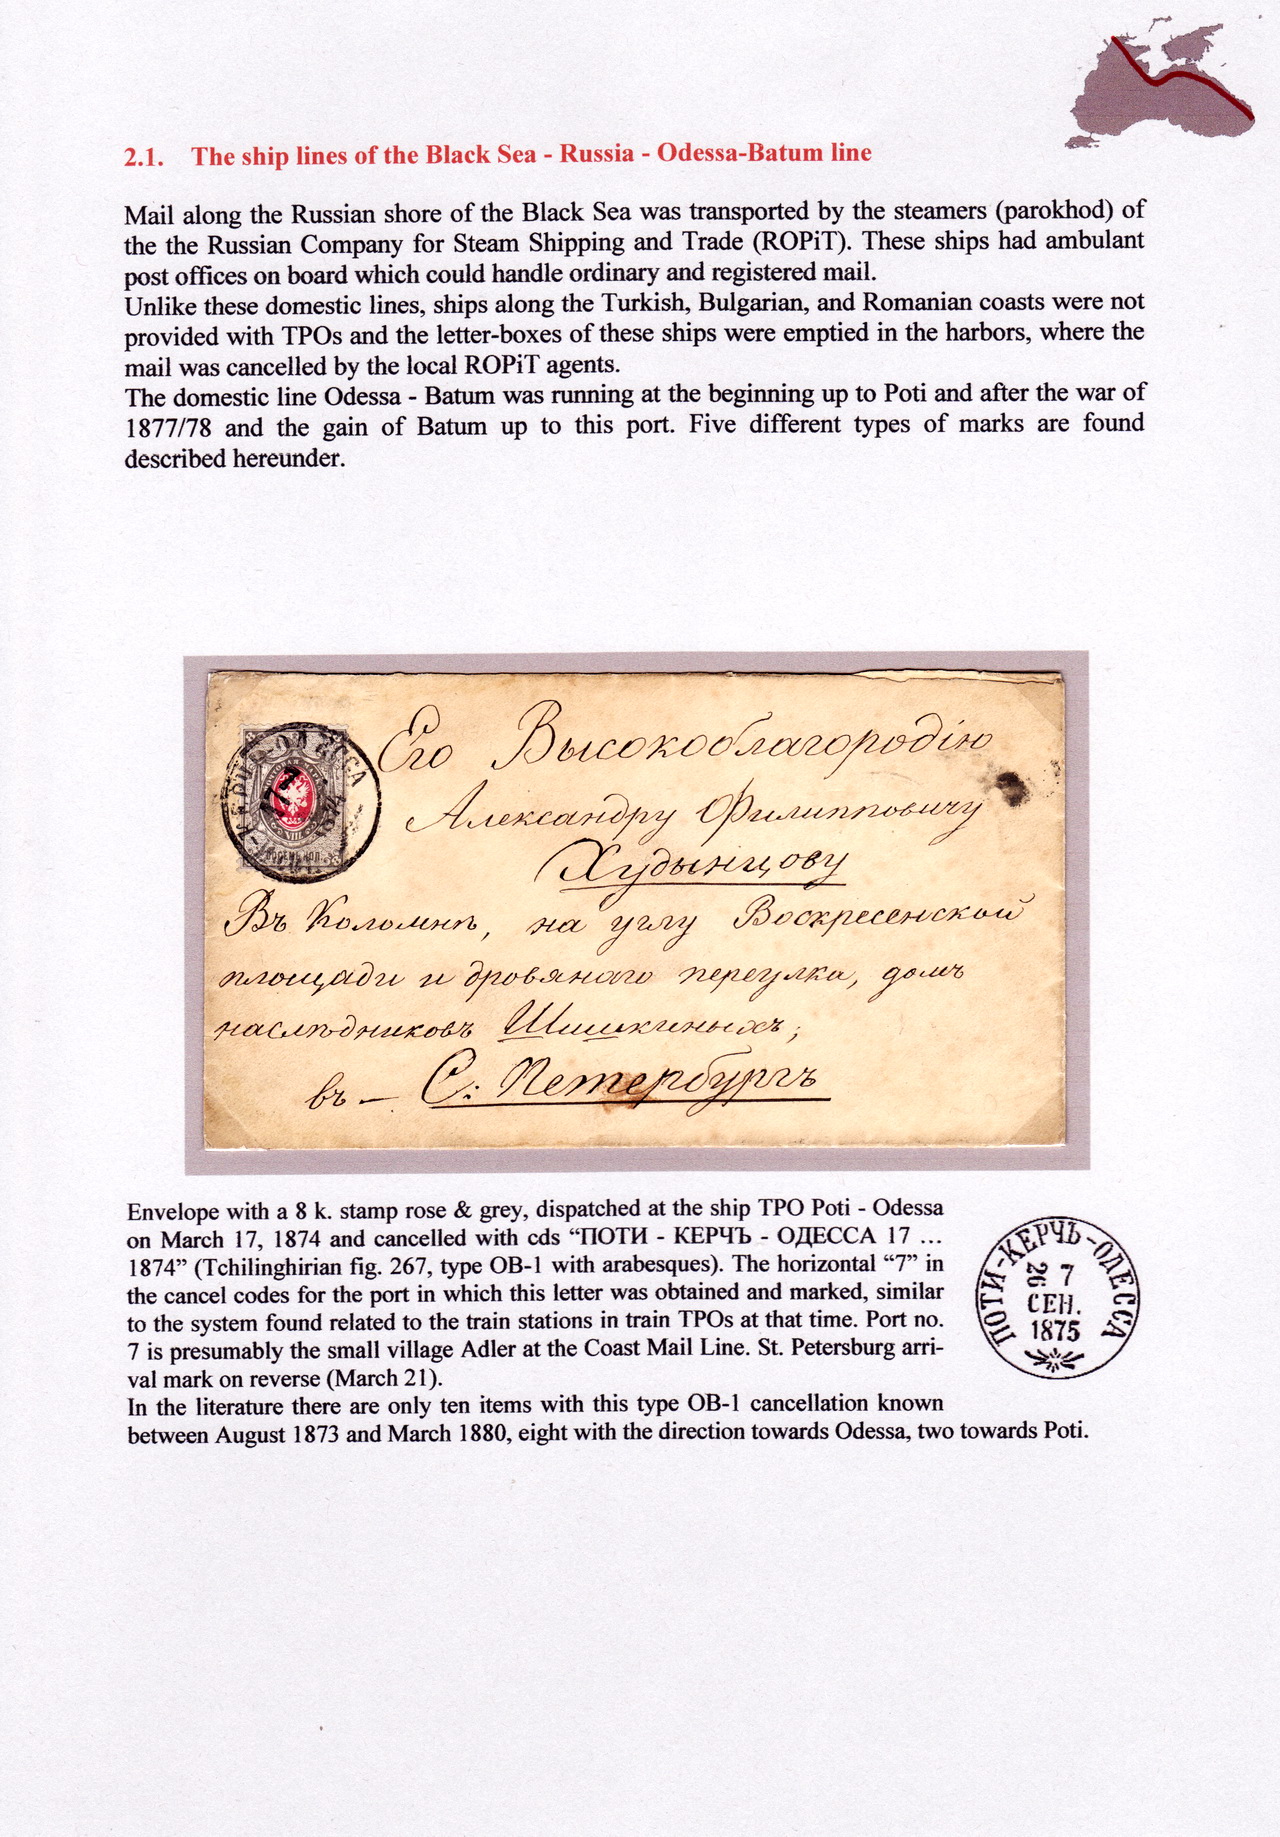 2.1. The ship lines of the Black Sea - Russia - Odessa-Batum line
Mail along the Russian shore of the Black Sea was transported by the steamers (parokhod) of
the the Russian Company for Steam Shipping and Trade (ROPiT). These ships had ambulant
post offices on board which could handle ordinary and registered mail.
Unlike these domestic lines, ships along the Turkish, Bulgarian, and Romanian coasts were not
provided with TPOs and the letter-boxes of these ships were emptied in the harbors, where the
mail was cancelled by the local ROPiT agents.
The domestic line Odessa - Batum was running at the beginning up to Poti and after the war of
1877/78 and the gain of Batum up to this port. Five different types of marks are found
described hereunder.
Его Высокоблагородію
Александру Филипповичу
Худынцову
Въ Коломнѣ, на углу Воскресенской
площади и дровянаго переулка, домъ
наслѣдниковъ Шишкиныхъ;
въ - С: Петербургъ
ОДЕССА
7
17
1874
VIII
ВОСЕМЬ КОП.
Envelope with a 8 k. stamp rose & grey, dispatched at the ship TPO Poti - Odessa
on March 17, 1874 and cancelled with cds “ПОТИ - КЕРЧЪ - ОДЕССА 17 ...
1874” (Tchilinghirian fig. 267, type OB-1 with arabesques). The horizontal “7” in
the cancel codes for the port in which this letter was obtained and marked, similar
to the system found related to the train stations in train TPOs at that time. Port no.
7 is presumably the small village Adler at the Coast Mail Line. St. Petersburg arri-
val mark on reverse (March 21).
In the literature there are only ten items with this type OB-1 cancellation known
between August 1873 and March 1880, eight with the direction towards Odessa, two towards Poti.
ПОТИ-КЕРЧЪ-ОДЕССА
26 7
СЕН.
1875